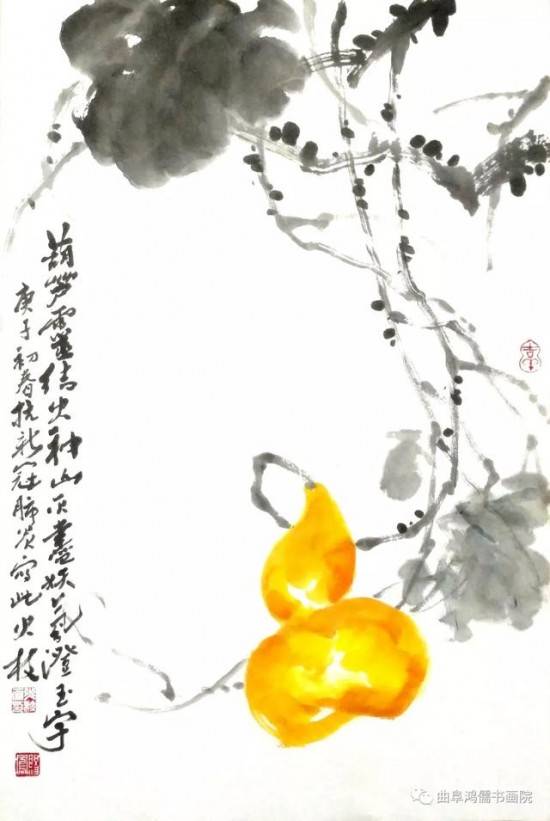 葫芦靈结火神山灭盡妖氛澄玉宇
庚子初春抗新冠肺炎写此
曲阜鸿儒书画院